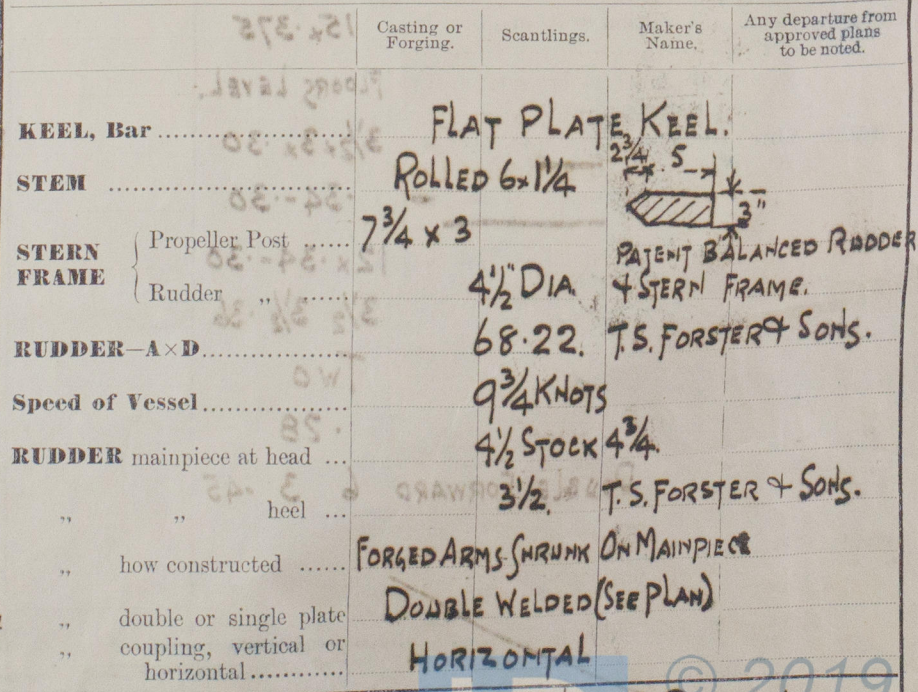 Casting or Forging. Scantlings. Maker's Name. Any departure from approved plans to be noted.
KEEL, Bar FLAT PLATE KEEL.
2 3/4 5
STEM ROLLED 6 x 1 1/4
3"
STERN FRAME { Propeller Post 7 3/4 x 3
PATENT BALANCED RUDDER
Rudder „ 4 1/2" DIA. & STERN FRAME.
RUDDER—A×D 68.22. T.S. FORSTER & SONS.
Speed of Vessel 9 3/4 KNOTS
RUDDER mainpiece at head 4 1/2 STOCK 4 3/4.
„ „ heel 3 1/2. T.S. FORSTER & SONS.
„ how constructed FORGED ARMS SHRUNK ON MAINPIECE
„ double or single plate DOUBLE WELDED (SEE PLAN)
„ coupling, vertical or horizontal HORIZONTAL
© 2019